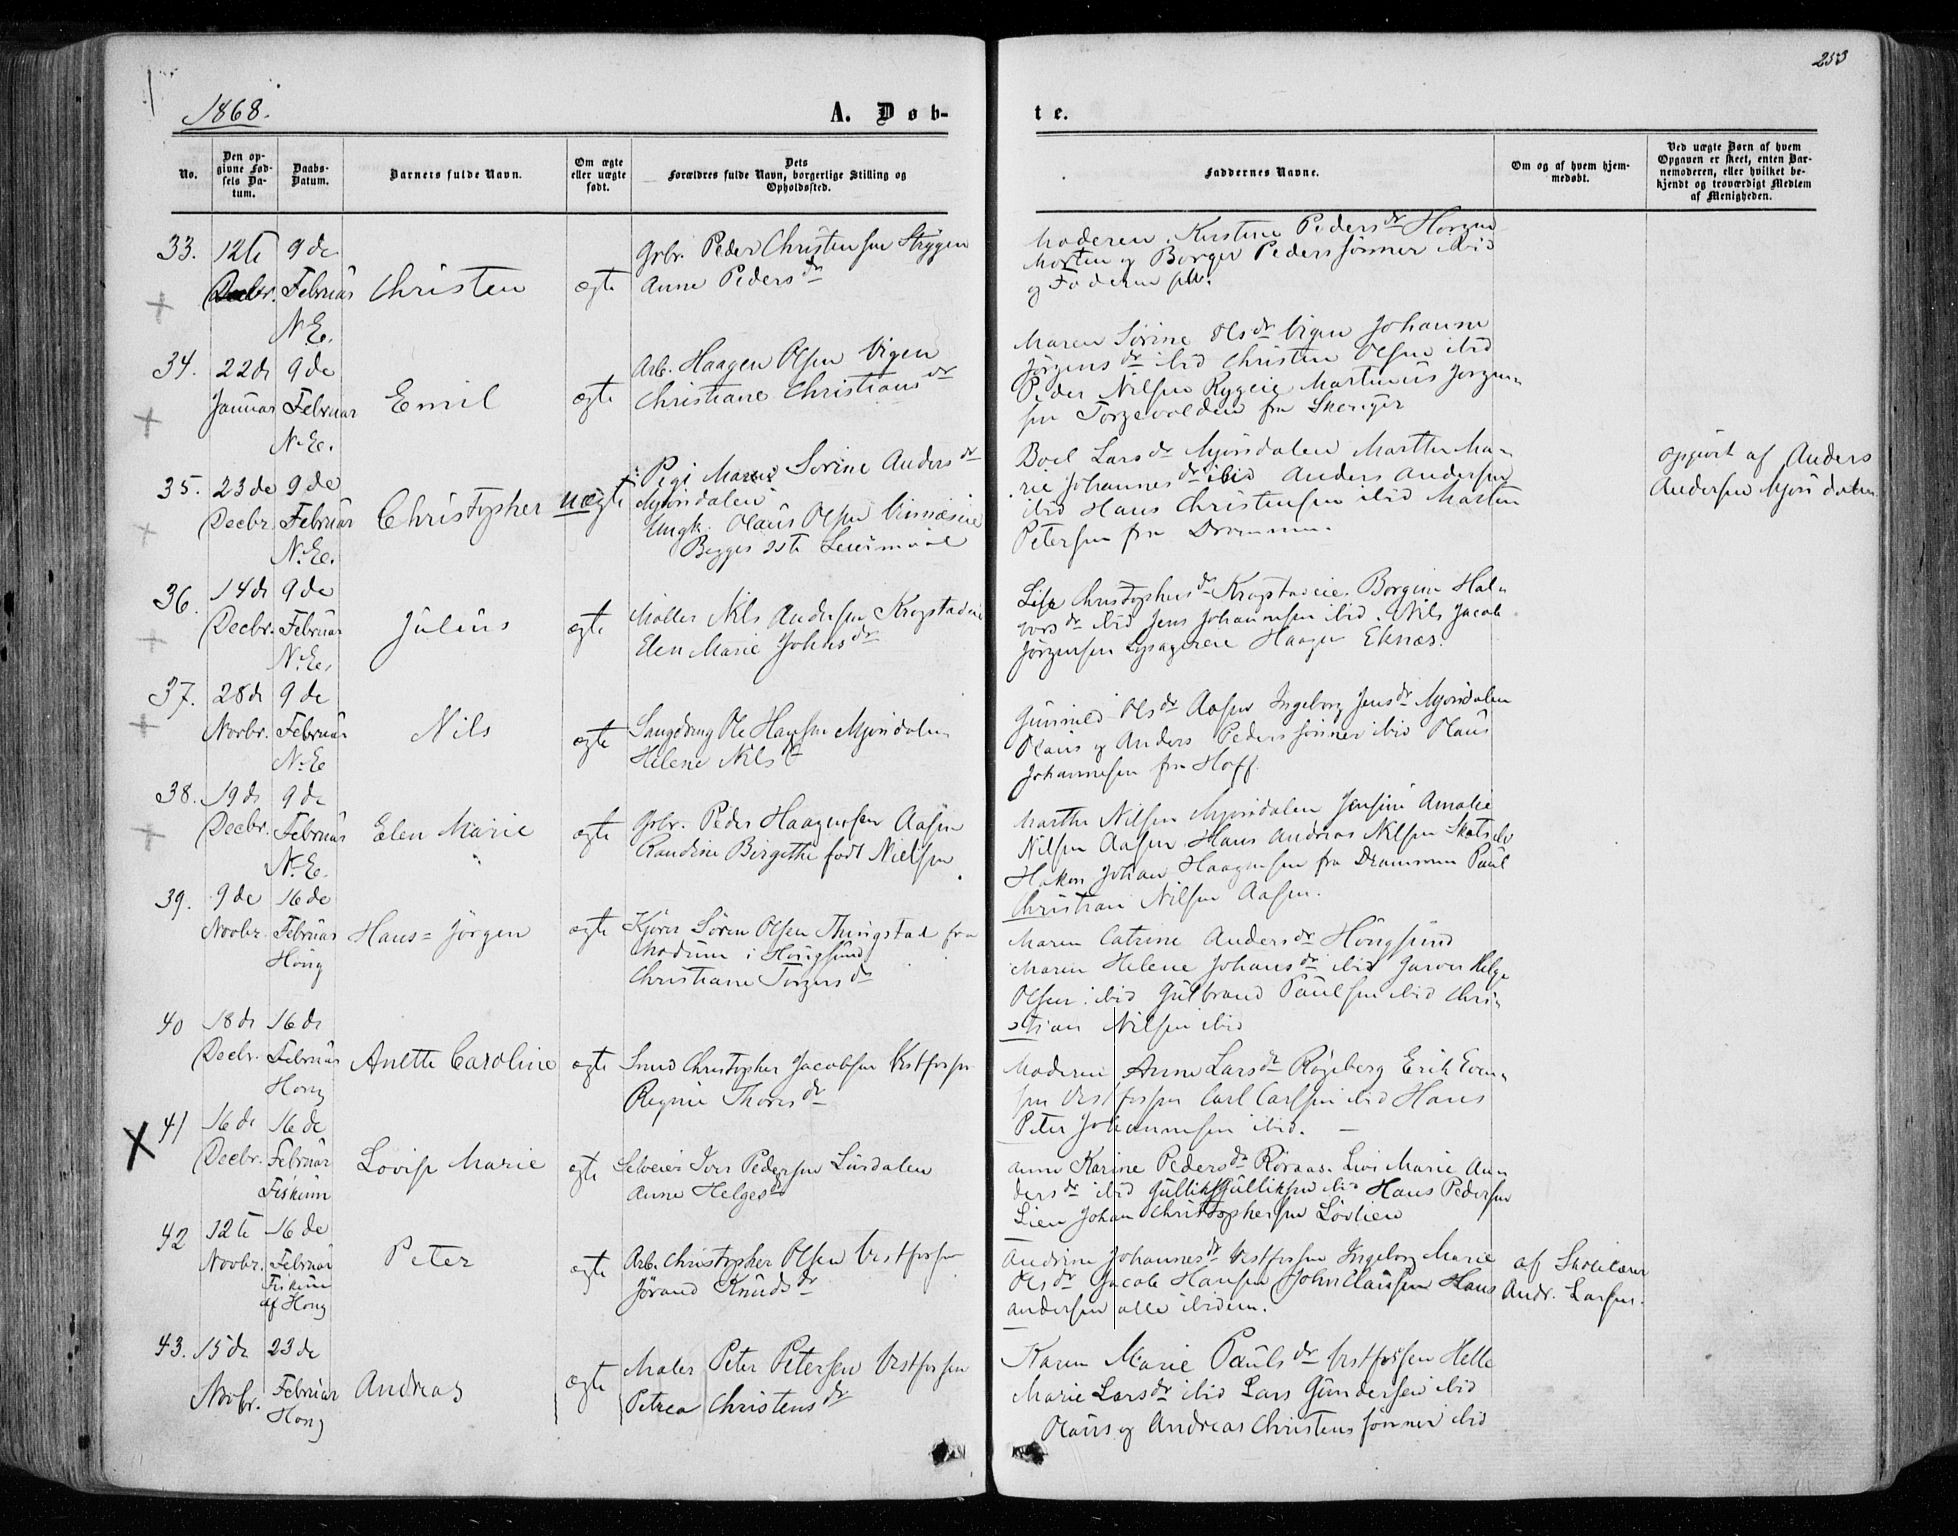 253
1868.
A. Døb-
te.
No.
Den op-
givne Fød-
sels Da-
tum.
Daabs-
Datum.
Barnets fulde Navn.
Om ægte
eller uægte
født.
Dets
Forældres fulde Navn, borgerlige Stilling og
Opholdssted.
Faddernes Navne.
Om og af hvem hjem-
medøbt.
Ved uægte Børn af hvem
Opgaven er skeet, enten Bar-
nemoderen, eller hvilket be-
kjendt og troværdigt Medlem
af Menigheden.
33. 12te Decbr.
9de Februar N.E.
Christen
ægte
Grbr. Peder Christensen Strygen
Anne Pedersdr
Moderen. Kirstine Pedersdr Horgen
Morten og Borger Peders sønner ibid
og Faderen
34. 22de Januar
9de Februar N.E.
Emil
ægte
Arb. Haagen Olsen Vigen
Christiane Christiansdr
Maren Sørine Olsdr Vigen Johanne
Jørgensdr ibid Christen Olsen ibid
Peder Nilsen Rygeie Martinus Jørgen-
sen fra
35. 23de Decbr.
9de Februar N.E.
Christopher
uægte
Pige Maren Sørine Andersdr
Mjøndalen
Ungk. Olaus Olsen
Begges 2det Leiermaal
Boel Larsdr Mjøndalen Marthe Ma-
rie Johannesdr ibid Anders Andersen
ibid Hans Christensen ibid Morten
Petersen fra Drammen.
opgivet af Anders
Andersen Mjøndalen
36. 14de Decbr.
9de Februar N.E.
Julius
ægte
Møller Nils Andersen Krogstadeie
Elen Marie Johnsdr
Lise Christophersdr Krogstadeie. Borgine Hal-
vorsdr ibid Jens Johannesen ibid. Nils Jacob
Jørgensen Haagen Eknæs.
37. 28de Novbr.
9de Februar N.E.
Nils
ægte
Saugdreng Ole Hansen Mjøndalen
Helene Nilsdr
Gunnild Olsdr Aasen Ingeborg Jensdr Mjøndalen
Olaus og Anders Peders sønner ibid Olaus
Johannesen fra Hoff.
38. 19de Decbr.
9de Februar N.E.
Elen Marie
ægte
Grbr. Peder Haagensen Aasen
Randine Birgitte født Nielsen
Marthe Nilsen Mjøndalen Jensine Amalie
Nilsen Aasen Hans Andreas Nilsen
Hakon Johan Haagensen fra Drammen Paul
Christian Nilsen Aasen.
39. 9de Novbr.
16de Februar Houg
Hans=Jørgen
ægte
Kjører Søren Olsen Thingstad fra
Modum i Hougsund
Christiane Torgersdr
Maren Catrine Andersdr Hougsund
Maren Helene Johansdr ibid Helge
Olsen ibid Gulbrand Paulsen ibid Chri-
stian Nilsen ibid
40 18de Decbr.
16de Februar Houg
Anette Caroline
ægte
Smed Christopher Jacobsen Vestfossen
Regine Thoresdr
Moderen Anne Larsdr Røgeberg Erik Even-
sen Vestfossen Carl Carlsen ibid Hans
Peter Johannesen ibid.
41 16de Decbr.
16de Februar Fiskum
Lovise Marie
ægte
Selveier Iver Pedersen Lürdalen
Anne Helgesdr
Anne Karine Pedersdr Røraas. Livs Marie An-
dersdr ibid Gullik Gulliksen ibid Hans Pedersen
Lien Johan Christophersen Lövlien
42 12te Novbr.
16de Februar Fiskum af Houg
Peter
ægte
Arb. Christopher Olsen Vestfossen
Jørand Knudsdr
Andrine Johannesdr Vestfossen Ingeborg Marie
Olsdr Jacob Hansen John Clausen Hans
Andersen alle ibidem.
af Skolelærer
Andr. Larsen.
43. 15de Novbr.
23de Februar Houg
Andreas
ægte
Maler Peter Petersen Vestfossen
Petrea Christensdr
Karen Marie Paulsdr Vestfossen Helle
Marie Larsdr ibid Lars Gundersen ibid
Olaus og Andreas Christens sønner ibid